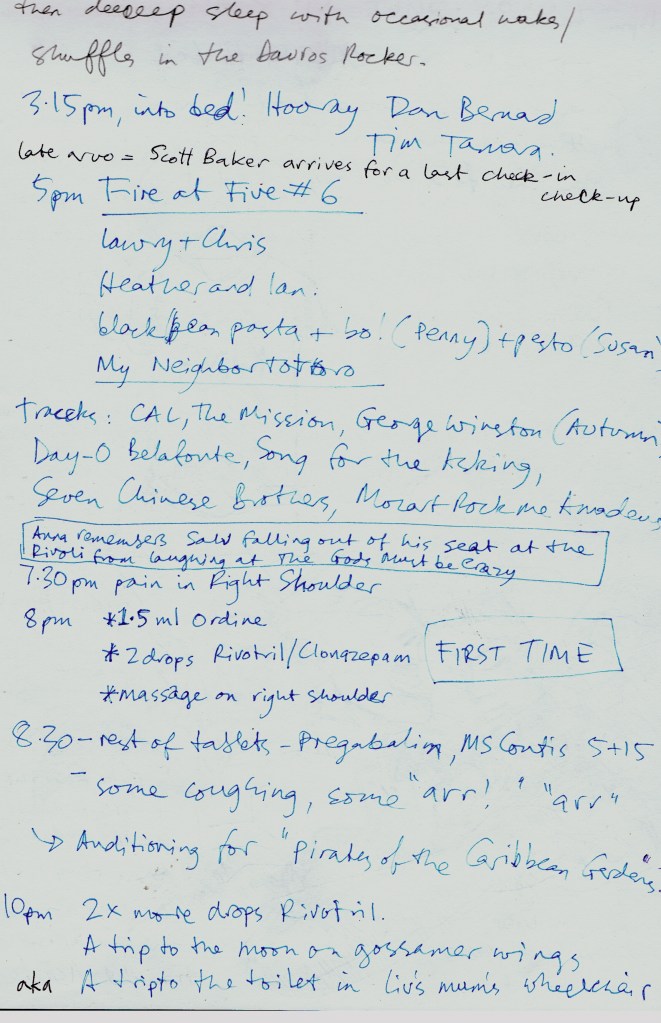 then deepeep sleep with occasional wakes/
shuffles in the Davros Rocker.
3.15pm, into bed! Hooray Dan Bernad
Tim Tamara.
late arvo = Scott Baker arrives for a last check-in
check-up
5pm Fire at Five #6
Lawry + Chris
Heather and Ian.
black bean pasta + bo! (Penny) + pesto (Susan)
My Neighbor Totoro
tracks: CAL, The Mission, George Winston (Autumn)
Day-O Belafonte, Song for the Asking,
Seven Chinese Brothers, Mozart Rock me Amadeus
Anna remembers Saul falling out of his seat at the
Rivoli from laughing at The Gods Must be Crazy
7.30pm pain in Right Shoulder
8pm *1.5 ml Ordine
*2 drops Rivotril/Clonazepam FIRST TIME
*massage on right shoulder
8.30 - rest of tablets - Pregabalin, MS Contis 5+15
- some coughing, some "arr!" "arr"
↳ Auditioning for "Pirates of the Caribbean Gardens".
10pm 2x more drops Rivotril.
A trip to the moon on gossamer wings
aka A trip to the toilet in Liv's mum's wheelchair